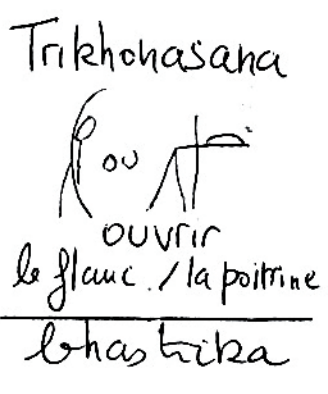 Trikhonasana
ou
ouvrir
le flanc. / la poitrine
bhastrika